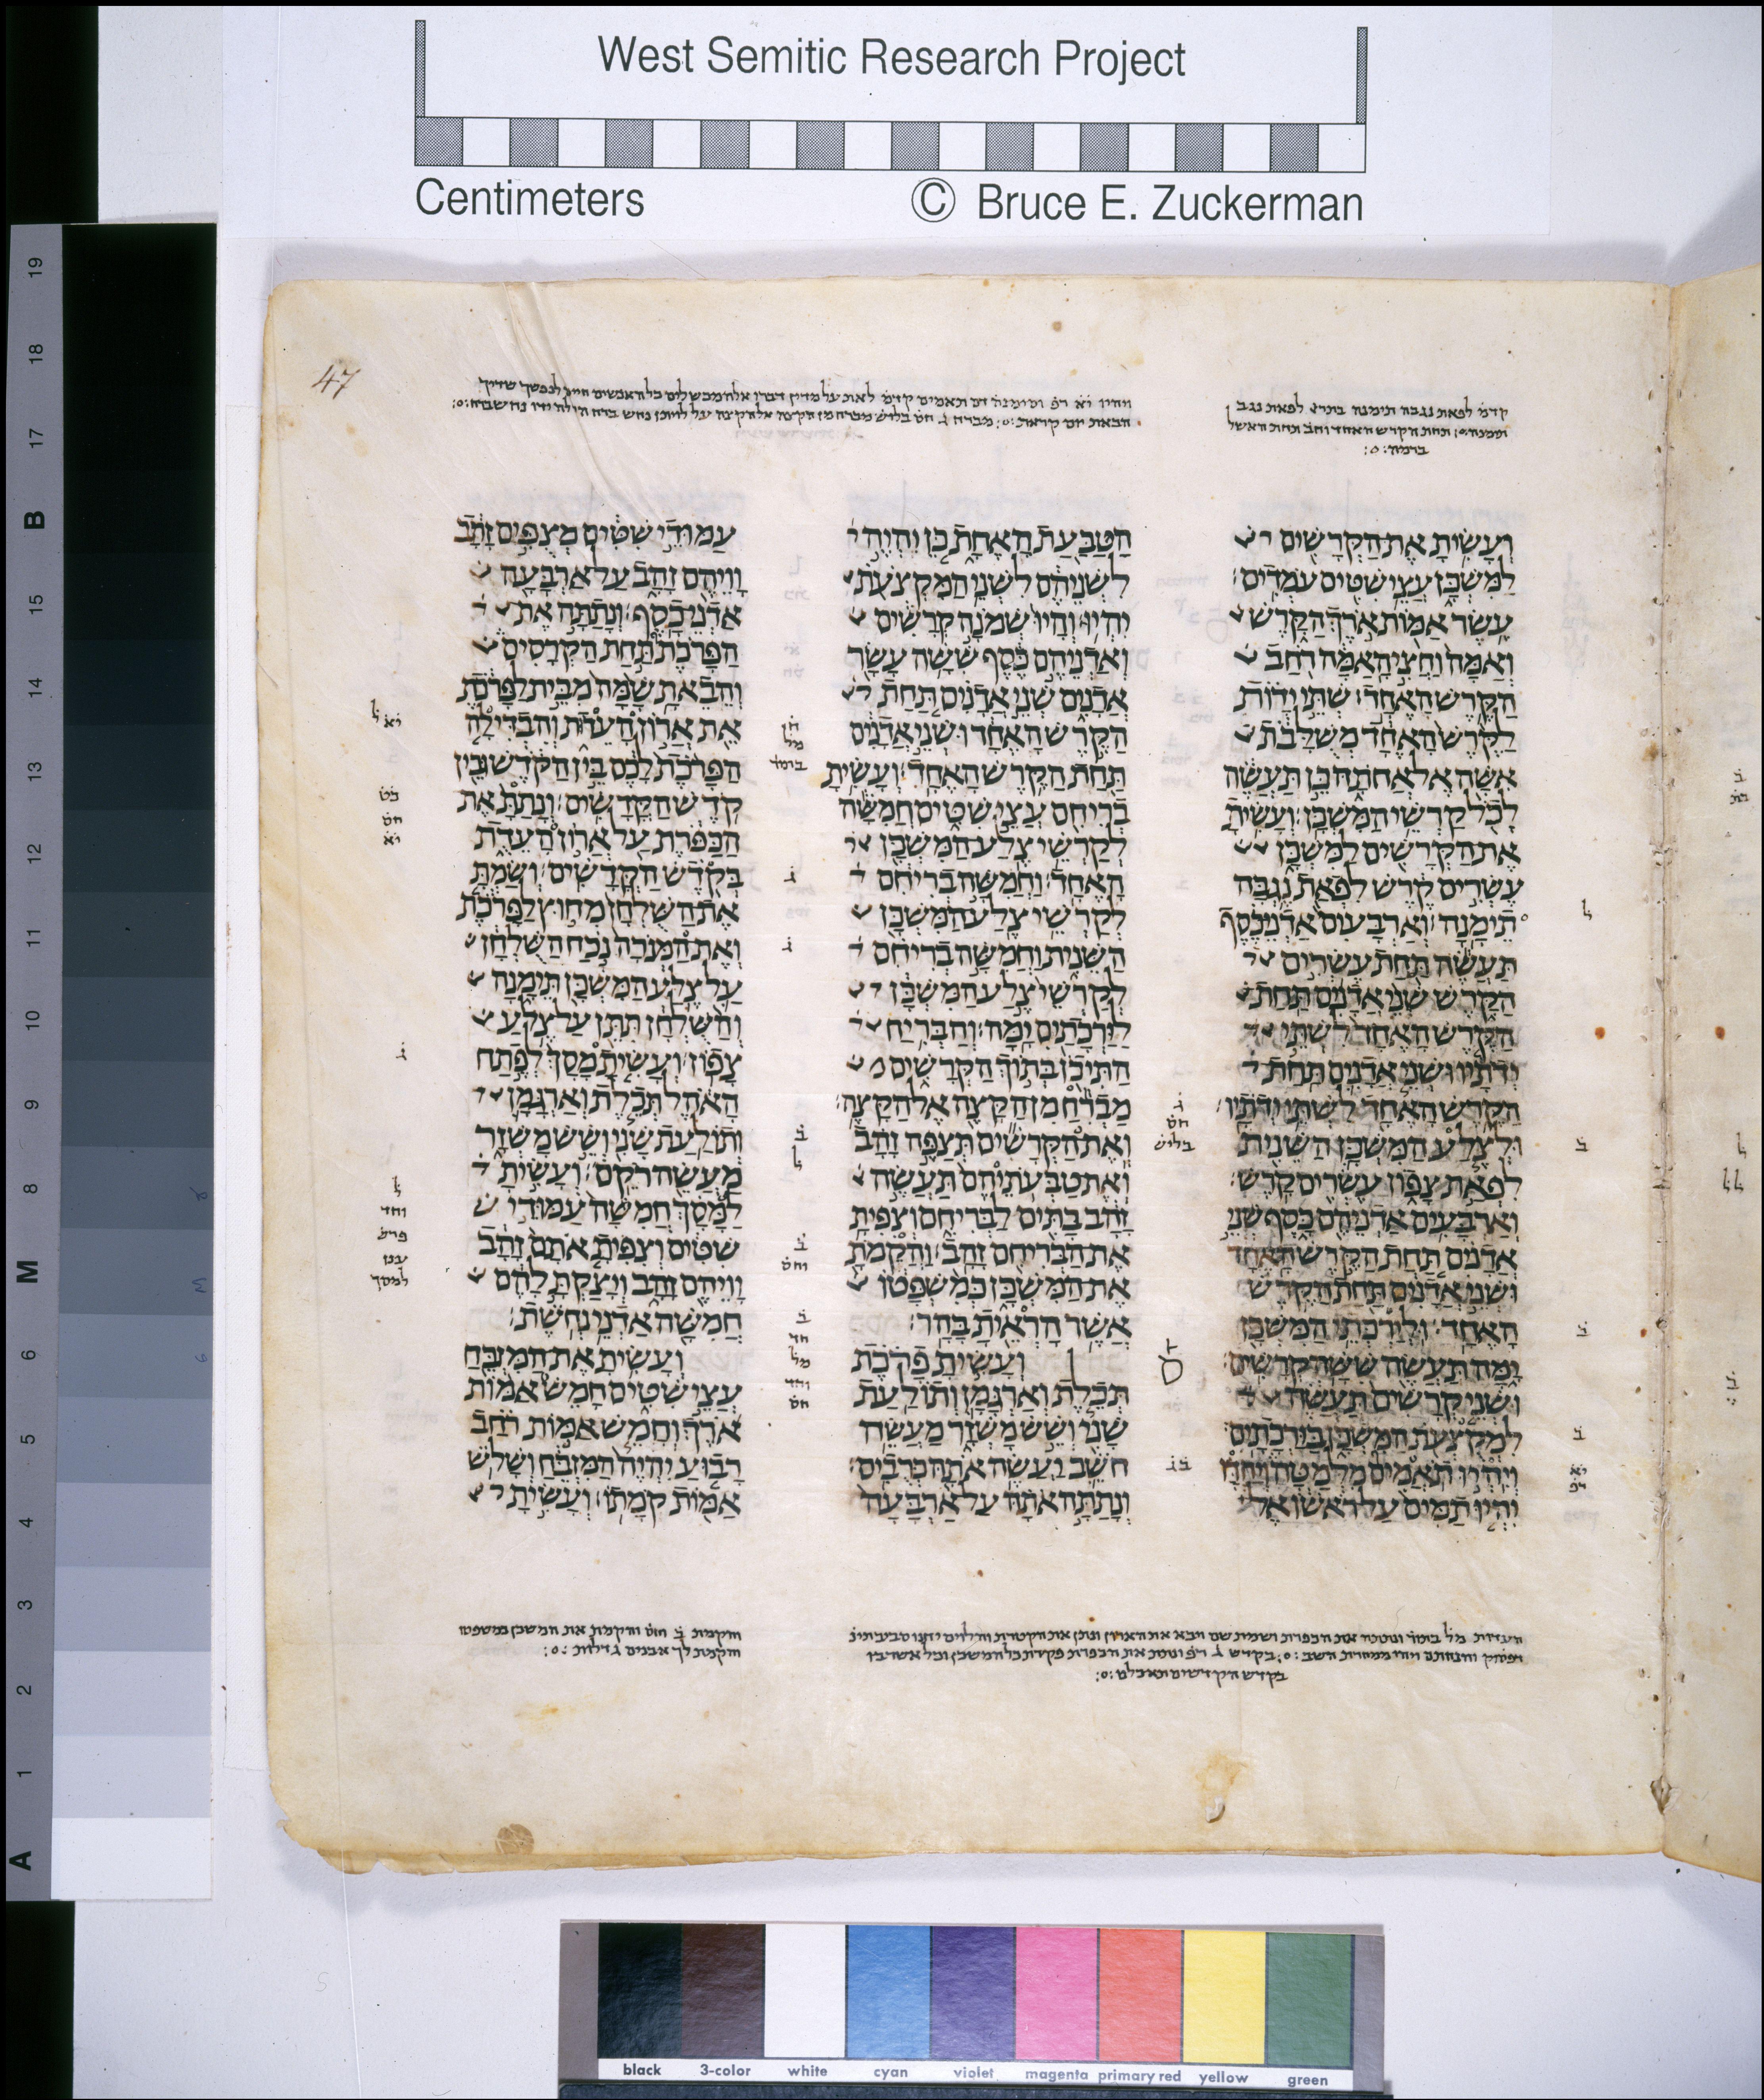 West Semitic Research Project
Centimeters © Bruce E. Zuckerman
47
וְעָשִׂיתָ אֶת הַקְּרָשִׁים
לַמִּשְׁכָּן עֲצֵי שִׁטִּים עֹמְדִים׃
עֶשֶׂר אַמּוֹת אֹרֶךְ הַקָּרֶשׁ
וְאַמָּה וַחֲצִי הָאַמָּה רֹחַב
הַקֶּרֶשׁ הָאֶחָד׃ שְׁתֵּי יָדוֹת
לַקֶּרֶשׁ הָאֶחָד מְשֻׁלָּבֹת
אִשָּׁה אֶל אֲחֹתָהּ כֵּן תַּעֲשֶׂה
לְכֹל קַרְשֵׁי הַמִּשְׁכָּן׃ וְעָשִׂיתָ
אֶת הַקְּרָשִׁים לַמִּשְׁכָּן
עֶשְׂרִים קֶרֶשׁ לִפְאַת נֶגְבָּה
תֵימָנָה׃ וְאַרְבָּעִים אַדְנֵי כֶסֶף
תַּעֲשֶׂה תַּחַת עֶשְׂרִים
הַקָּרֶשׁ שְׁנֵי אֲדָנִים תַּחַת
הַקֶּרֶשׁ הָאֶחָד לִשְׁתֵּי
יְדֹתָיו וּשְׁנֵי אֲדָנִים תַּחַת
הַקֶּרֶשׁ הָאֶחָד לִשְׁתֵּי יְדֹתָיו׃
וּלְצֶלַע הַמִּשְׁכָּן הַשֵּׁנִית
לִפְאַת צָפוֹן עֶשְׂרִים קָרֶשׁ׃
וְאַרְבָּעִים אַדְנֵיהֶם כָּסֶף שְׁנֵי
אֲדָנִים תַּחַת הַקֶּרֶשׁ הָאֶחָד
וּשְׁנֵי אֲדָנִים תַּחַת הַקֶּרֶשׁ
הָאֶחָד׃ וּלְיַרְכְּתֵי הַמִּשְׁכָּן
יָמָּה תַּעֲשֶׂה שִׁשָּׁה קְרָשִׁים׃
וּשְׁנֵי קְרָשִׁים תַּעֲשֶׂה
לִמְקֻצְעֹת הַמִּשְׁכָּן בַּיַּרְכָתָיִם׃
וְיִהְיוּ תֹאֲמִים מִלְּמַטָּה וְיַחְדָּו
יִהְיוּ תַמִּים עַל רֹאשׁוֹ אֶל
הַטַּבַּעַת הָאֶחָת כֵּן יִהְיֶה
לִשְׁנֵיהֶם לִשְׁנֵי הַמִּקְצֹעֹת
יִהְיוּ׃ וְהָיוּ שְׁמֹנָה קְרָשִׁים
וְאַדְנֵיהֶם כֶּסֶף שִׁשָּׁה עָשָׂר
אֲדָנִים שְׁנֵי אֲדָנִים תַּחַת
הַקֶּרֶשׁ הָאֶחָד וּשְׁנֵי אֲדָנִים
תַּחַת הַקֶּרֶשׁ הָאֶחָד׃ וְעָשִׂיתָ
בְרִיחִם עֲצֵי שִׁטִּים חֲמִשָּׁה
לְקַרְשֵׁי צֶלַע הַמִּשְׁכָּן
הָאֶחָד׃ וַחֲמִשָּׁה בְרִיחִם
לְקַרְשֵׁי צֶלַע הַמִּשְׁכָּן
הַשֵּׁנִית וַחֲמִשָּׁה בְרִיחִם
לְקַרְשֵׁי צֶלַע הַמִּשְׁכָּן
לַיַּרְכָתַיִם יָמָּה׃ וְהַבְּרִיחַ
הַתִּיכֹן בְּתוֹךְ הַקְּרָשִׁים
מַבְרִחַ מִן הַקָּצֶה אֶל הַקָּצֶה׃
וְאֶת הַקְּרָשִׁים תְּצַפֶּה זָהָב
וְאֶת טַבְּעֹתֵיהֶם תַּעֲשֶׂה
זָהָב בָּתִּים לַבְּרִיחִם וְצִפִּיתָ
אֶת הַבְּרִיחִם זָהָב׃ וַהֲקֵמֹתָ
אֶת הַמִּשְׁכָּן כְּמִשְׁפָּטוֹ
אֲשֶׁר הָרְאֵיתָ בָּהָר׃
וְעָשִׂיתָ פָרֹכֶת
תְּכֵלֶת וְאַרְגָּמָן וְתוֹלַעַת
שָׁנִי וְשֵׁשׁ מָשְׁזָר מַעֲשֵׂה
חֹשֵׁב יַעֲשֶׂה אֹתָהּ כְּרֻבִים׃
וְנָתַתָּה אֹתָהּ עַל אַרְבָּעָה
עַמּוּדֵי שִׁטִּים מְצֻפִּים זָהָב
וָוֵיהֶם זָהָב עַל אַרְבָּעָה
אַדְנֵי כָסֶף׃ וְנָתַתָּה אֶת
הַפָּרֹכֶת תַּחַת הַקְּרָסִים
וְהֵבֵאתָ שָׁמָּה מִבֵּית לַפָּרֹכֶת
אֵת אֲרוֹן הָעֵדוּת וְהִבְדִּילָה
הַפָּרֹכֶת לָכֶם בֵּין הַקֹּדֶשׁ וּבֵין
קֹדֶשׁ הַקֳּדָשִׁים׃ וְנָתַתָּ אֶת
הַכַּפֹּרֶת עַל אֲרוֹן הָעֵדֻת
בְּקֹדֶשׁ הַקֳּדָשִׁים׃ וְשַׂמְתָּ
אֶת הַשֻּׁלְחָן מִחוּץ לַפָּרֹכֶת
וְאֶת הַמְּנֹרָה נֹכַח הַשֻּׁלְחָן
עַל צֶלַע הַמִּשְׁכָּן תֵּימָנָה
וְהַשֻּׁלְחָן תִּתֵּן עַל צֶלַע
צָפוֹן׃ וְעָשִׂיתָ מָסָךְ לְפֶתַח
הָאֹהֶל תְּכֵלֶת וְאַרְגָּמָן
וְתוֹלַעַת שָׁנִי וְשֵׁשׁ מָשְׁזָר
מַעֲשֵׂה רֹקֵם׃ וְעָשִׂיתָ
לַמָּסָךְ חֲמִשָּׁה עַמּוּדֵי
שִׁטִּים וְצִפִּיתָ אֹתָם זָהָב
וָוֵיהֶם זָהָב וְיָצַקְתָּ לָהֶם
חֲמִשָּׁה אַדְנֵי נְחֹשֶׁת׃
וְעָשִׂיתָ אֶת הַמִּזְבֵּחַ
עֲצֵי שִׁטִּים חָמֵשׁ אַמּוֹת
אֹרֶךְ וְחָמֵשׁ אַמּוֹת רֹחַב
רָבוּעַ יִהְיֶה הַמִּזְבֵּחַ וְשָׁלֹשׁ
אַמּוֹת קֹמָתוֹ׃ וְעָשִׂיתָ
והקמת ב חס והקמת את המשכן כמשפטו
והקמת לך אבנים גדלות
19
18
17
B
16
15
14
13
12
11
10
9
8
M
7
6
5
4
3
2
1
A
black 3-color white cyan violet magenta primary red yellow green